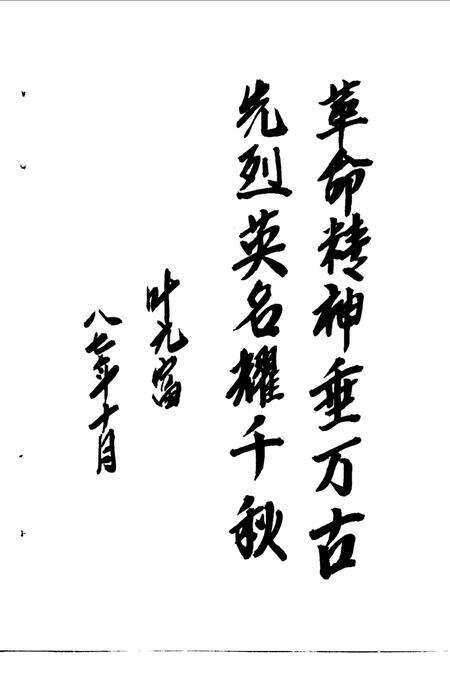 革命精神垂万古
先烈英名耀千秋
叶九富
八七年十月